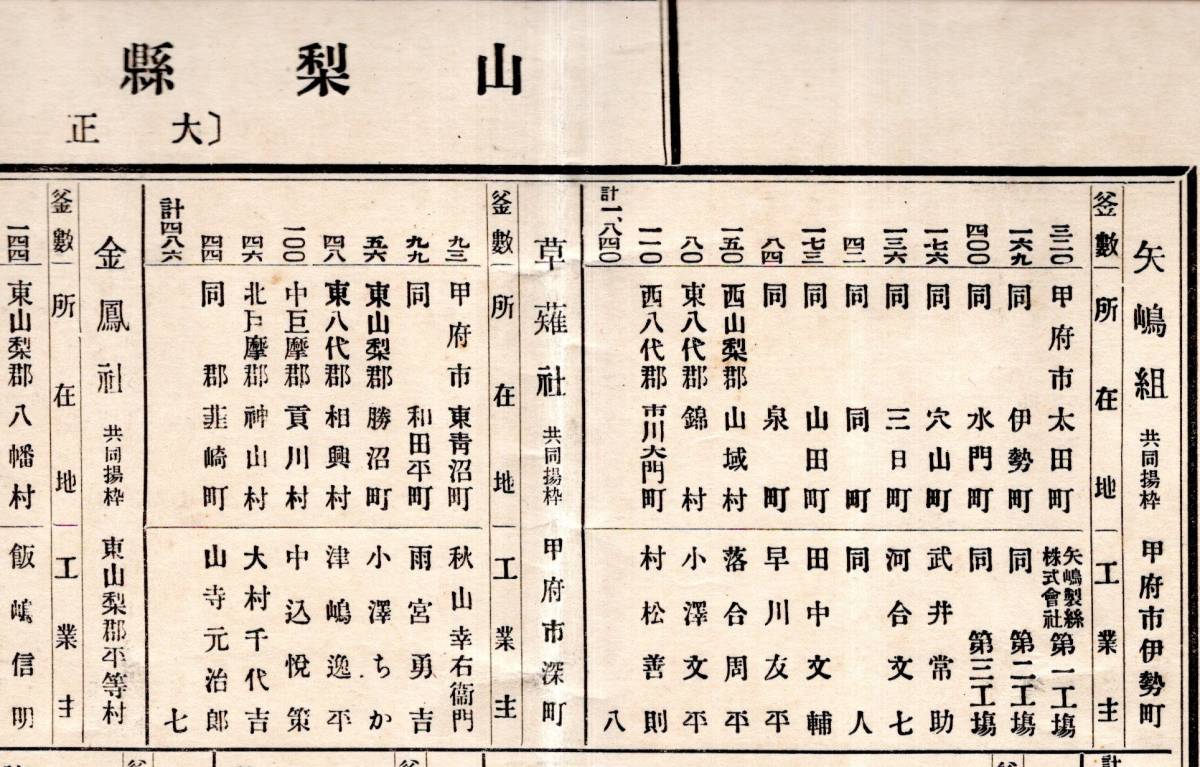 山梨縣
〔大正
矢嶋組 共同揚枠 甲府市伊勢町
釜數 所在地 工業主
三二〇 甲府市太田町 矢嶋製絲株式會社 第一工塲
一六九 同 伊勢町 同 第二工塲
四〇〇 同 水門町 同 第三工塲
一七六 同 穴山町 武井常助
一三六 同 三日町 河合文七
四二 同 同町 同人
一七三 同 山田町 田中文輔
八四 同 泉町 早川友平
一五〇 西山梨郡 山城村 落合周平
八〇 東八代郡 錦村 小澤文平
一一〇 西八代郡 市川大門町 村松善則
計一、八四〇 八
草薙社 共同揚枠 甲府市深町
釜數 所在地 工業主
九三 甲府市東靑沼町 秋山幸右衞門
九九 同 和田平町 雨宮勇吉
五六 東山梨郡 勝沼町 小澤ちか
四八 東八代郡 相興村 津嶋逸平
一〇〇 中巨摩郡 貢川村 中込悅策
四六 北巨摩郡 神山村 大村千代吉
四四 同郡 韮崎町 山寺元治郎
計四八六 七
金鳳社 共同揚枠 東山梨郡平等村
釜數 所在地 工業主
一四四 東山梨郡八幡村 飯嶋信明